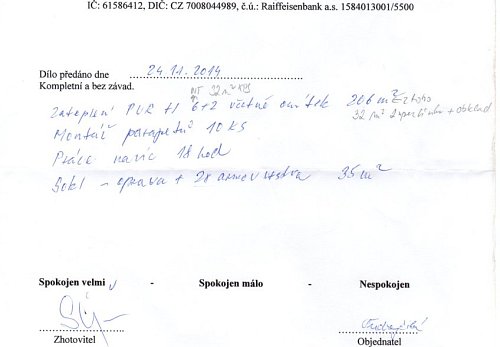 IČ: 61586412, DIČ: CZ 7008044989, č.ú.: Raiffeisenbank a.s. 1584013001/5500
Dílo předáno dne 24.11.2014
Kompletní a bez závad.
NT 32 m²
Zateplení PUR H 6+2 včetně omítek 206 m² z toho
32 m² + obklad
Montáž parapetů 10 KS
Práce navíc 18 hod
Sokl - oprava + 2x armov. vrstva 35 m²
Spokojen velmi - Spokojen málo - Nespokojen
Zhotovitel Objednatel